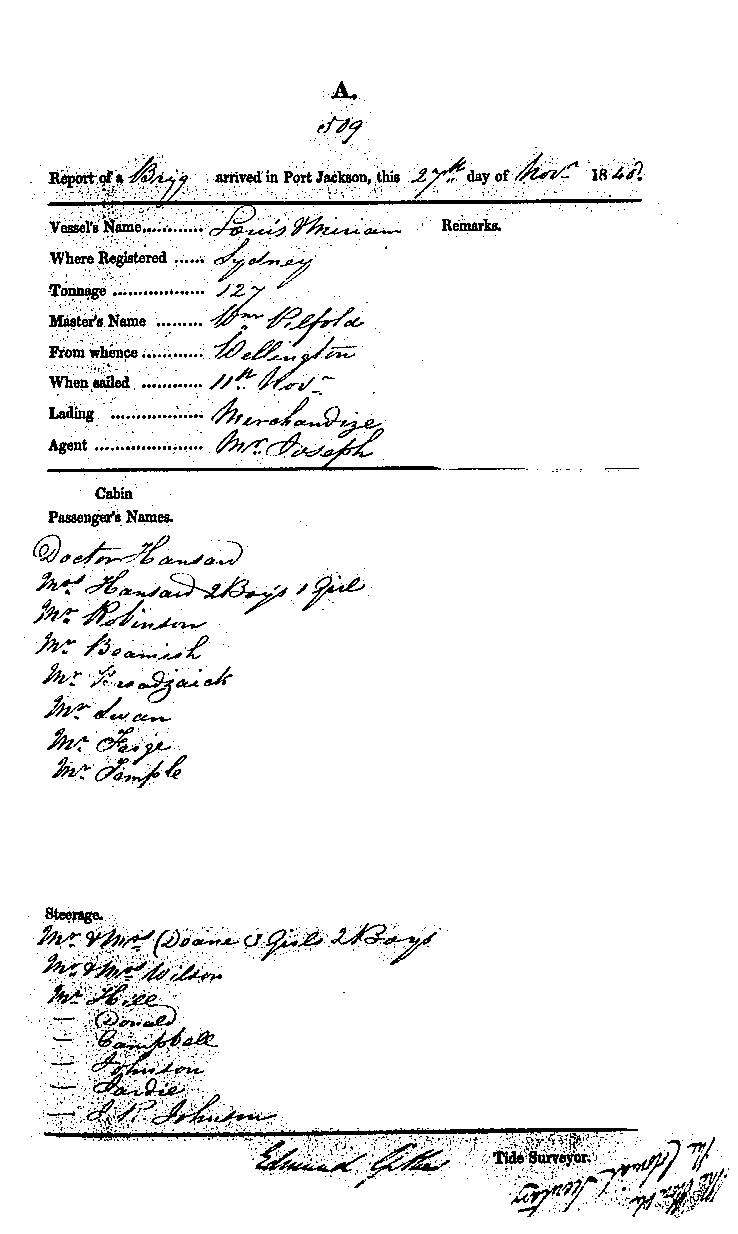 A.
509
Report of a Brig arrived in Port Jackson, this 27th day of Novr 1840.
Vessel's Name............ Louis & Miriam Remarks.
Where Registered ...... Sydney
Tonnage .................. 127
Master's Name ......... Wm Pilfold
From whence ............ Wellington
When sailed ............ 11th Novr
Lading .................. Merchandize
Agent ..................... Mr. Joseph
Cabin
Passenger's Names.
Doctor Hansard
Mrs Hansard 2 Boys 1 Girl
Mr Robinson
Mr Beamish
Mr
Mr Swan
Mr. Faige
Mr Temple
Steerage.
Mr & Mrs Doane 3 Girls 2 Boys
Mr & Mrs Wilson
Mr Hill
— Donald
— Campbell
— Johnson
— Jardie
— J. P. Johnson
Edmund Tide Surveyor.
The Honble
The Colonial Secretary